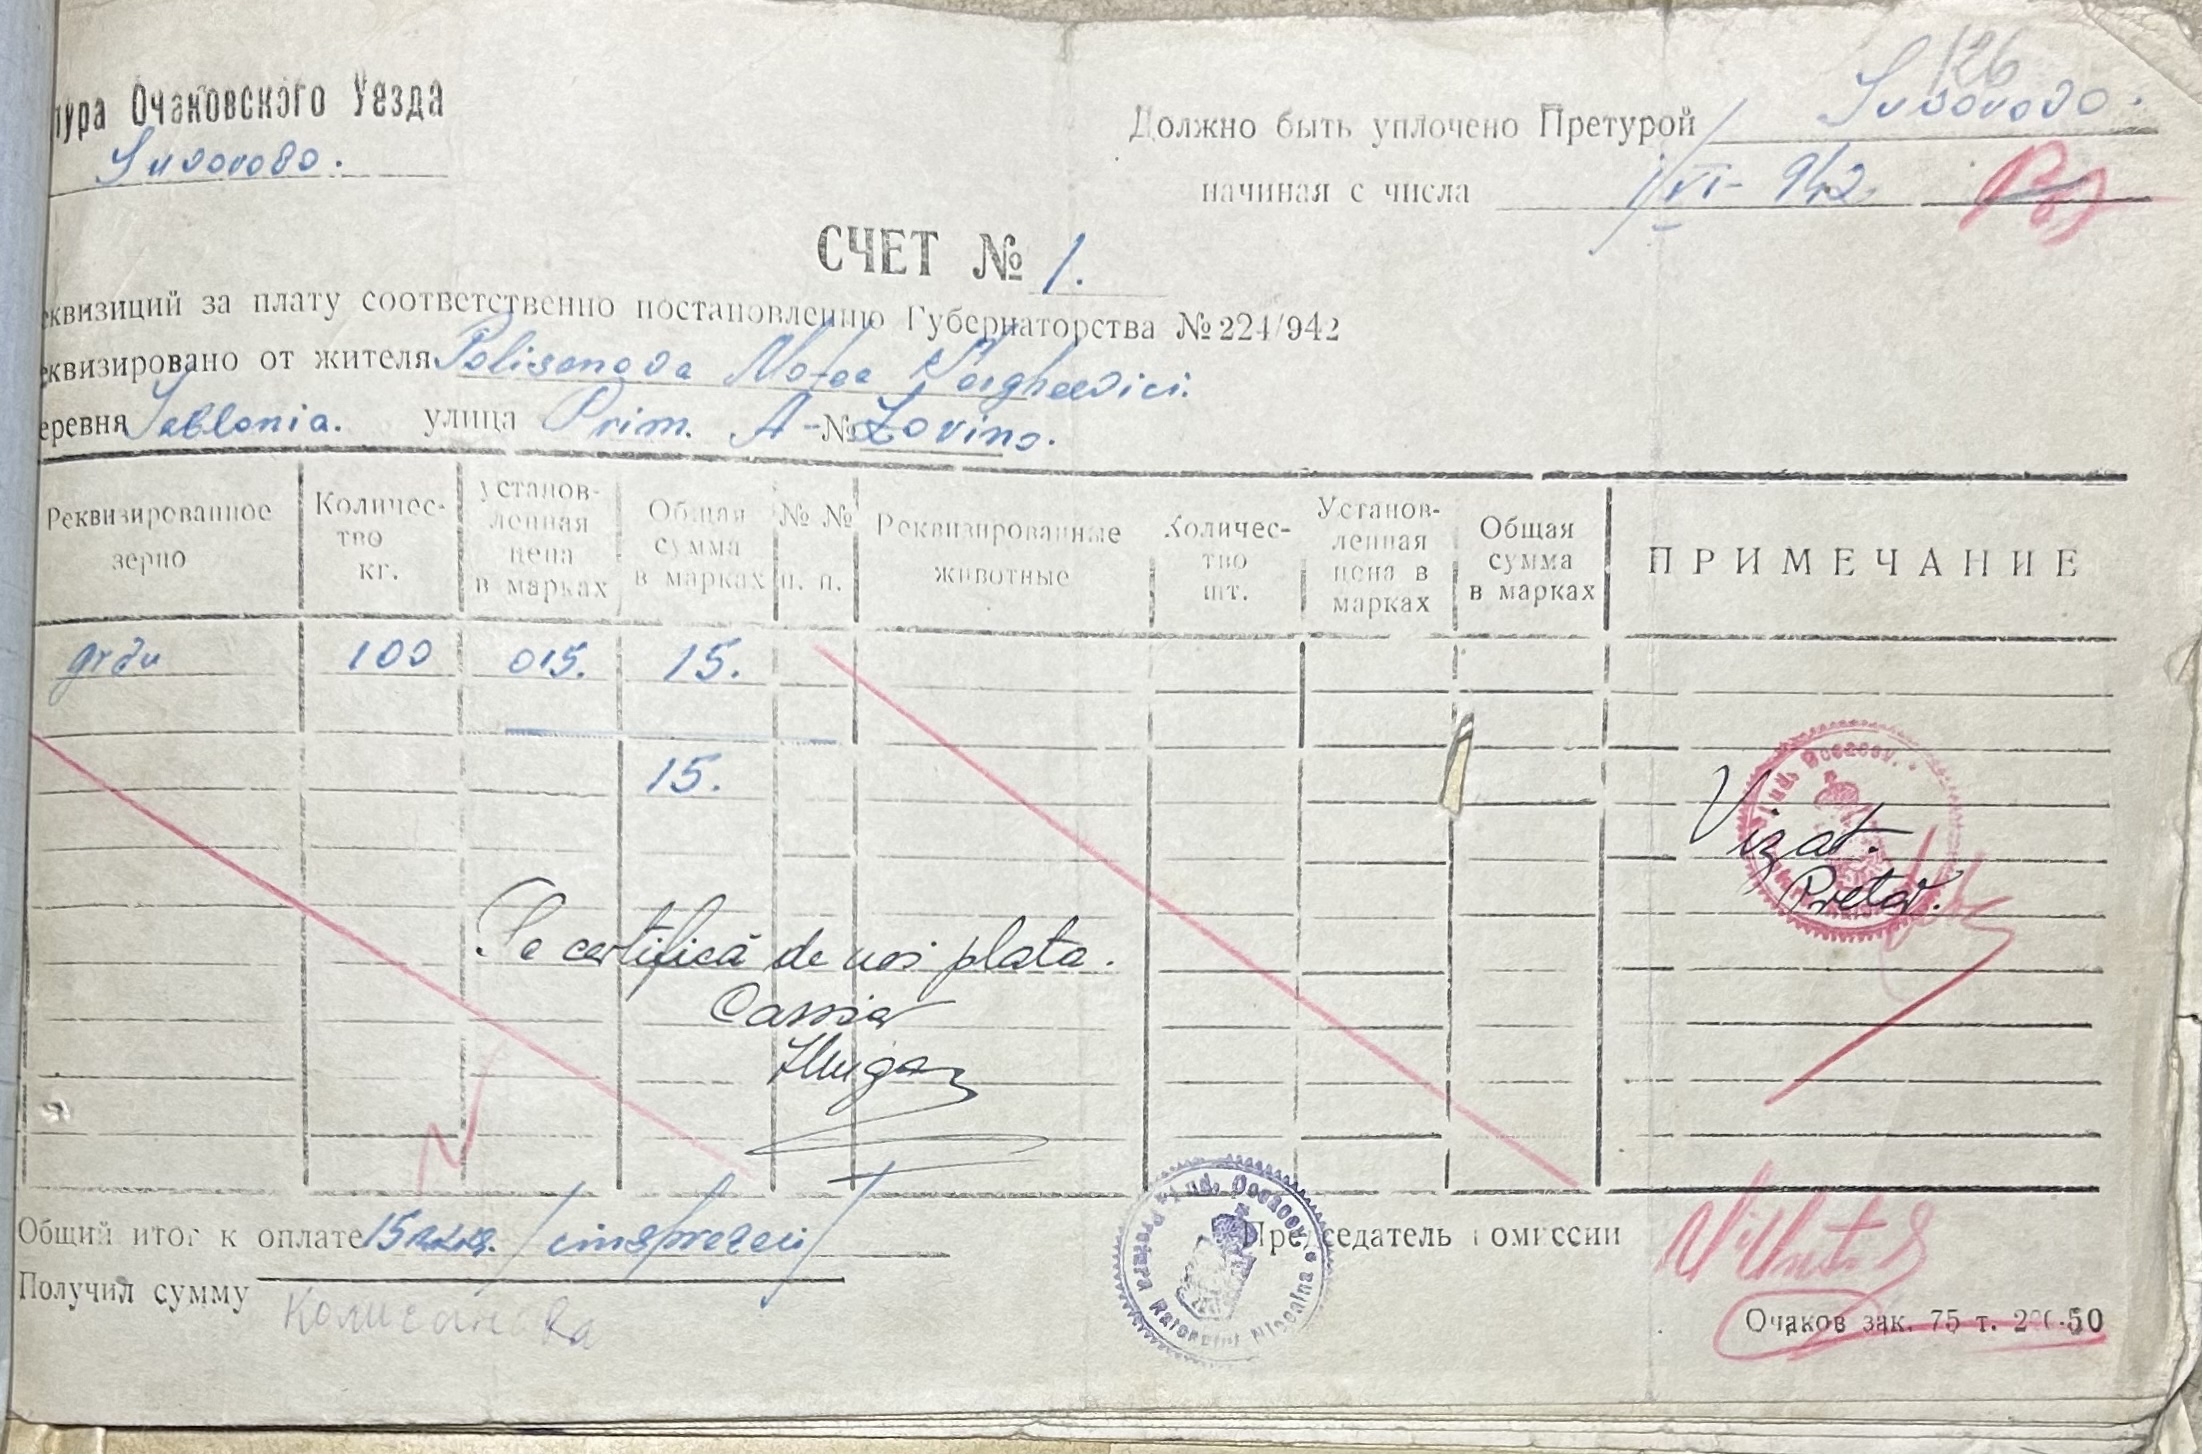 126
тура Очаковского Уезда
Suvorovo.
Должно быть уплочено Претурой Suvorovo.
начиная с числа 1/VI-942
СЧЕТ № 1.
еквизиций за плату соответственно постановлению Губернаторства № 224/942
еквизировано от жителя Polisanova Motea Gherghievici.
еревня Iablonia. улица Prim. A-№ Lovino.
Реквизированное зерно Количес-тво кг. установ-ленная цена в марках Общая сумма в марках №№ п. п. Реквизированные животные Количес-тво шт. Установ-ленная цена в марках Общая сумма в марках ПРИМЕЧАНИЕ
grâu 100 015. 15.
15.
Jud. Oceacov.
Vizat.
Pretor.
Se certifică de noi plata.
Cassier
Общий итог к оплате 15 /cinsprezeci/
Председатель комиссии
Jud. Oceacov. Pretura Raionului
Получил сумму
Очаков зак. 75 т. 200-50